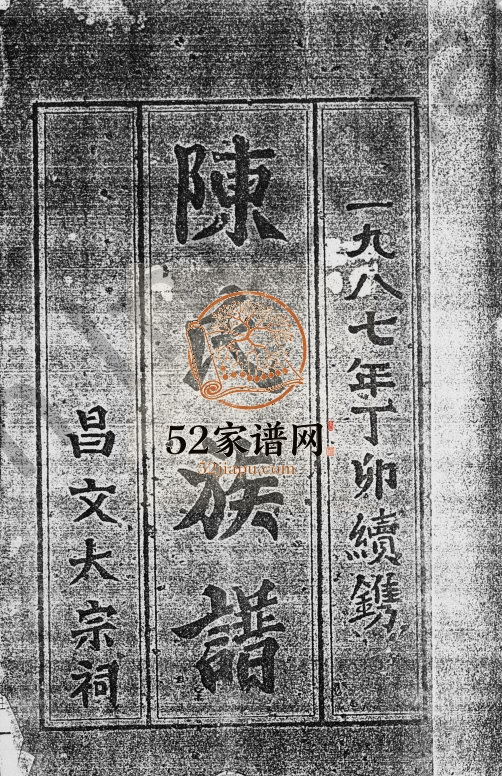 一九八七年丁卯續鐫
陳氏族譜
昌文大宗祠
52家谱网
52jiapu.com